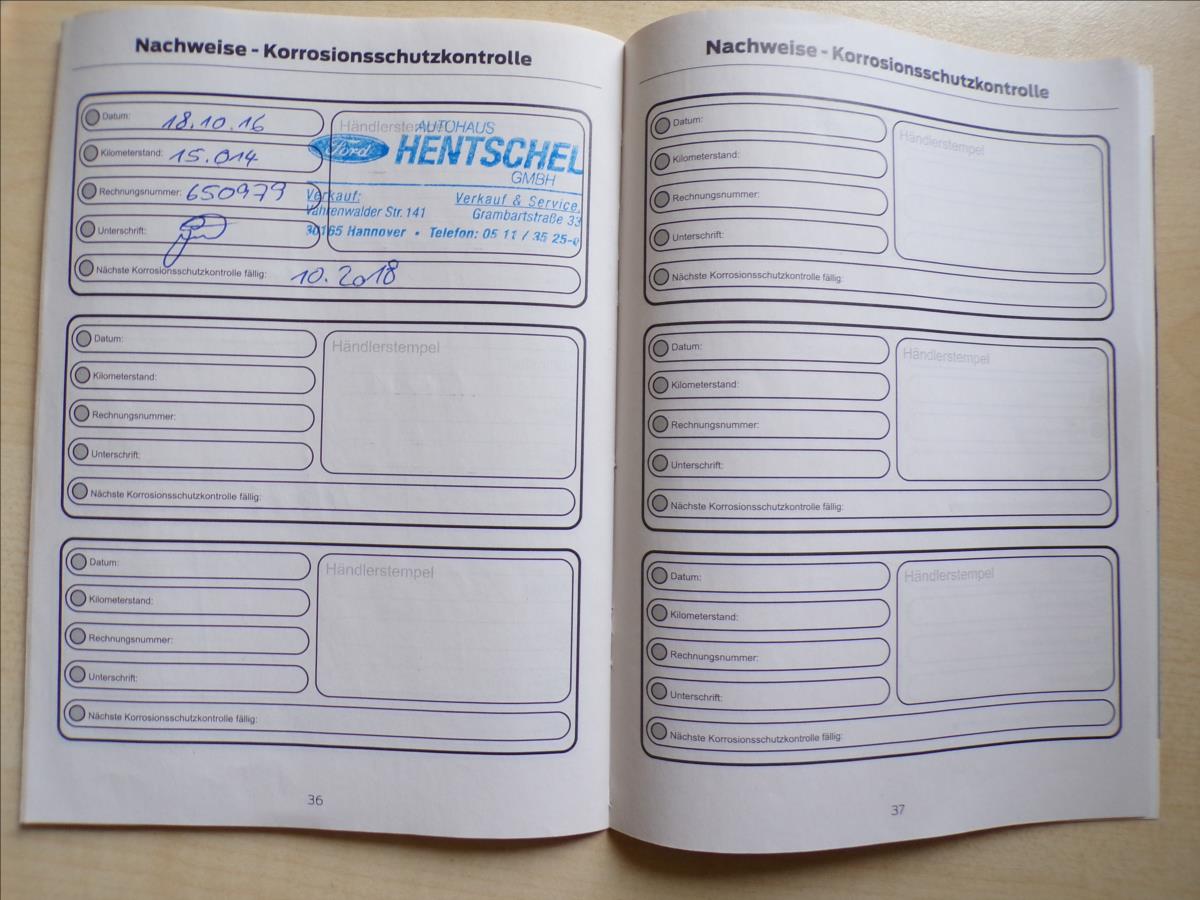 Nachweise - Korrosionsschutzkontrolle
Datum: 18.10.16
Kilometerstand: 15.014
Rechnungsnummer: 650979
Unterschrift:
Nächste Korrosionsschutzkontrolle fällig: 10.2018
Händlerstempel
AUTOHAUS
Ford HENTSCHEL
GMBH
Verkauf:
Vahrenwalder Str. 141
Verkauf & Service,
Grambartstraße 33
30165 Hannover • Telefon: 05 11 / 35 25-0
Datum:
Kilometerstand:
Rechnungsnummer:
Unterschrift:
Nächste Korrosionsschutzkontrolle fällig:
Händlerstempel
Datum:
Kilometerstand:
Rechnungsnummer:
Unterschrift:
Nächste Korrosionsschutzkontrolle fällig:
Händlerstempel
36
Nachweise - Korrosionsschutzkontrolle
Datum:
Kilometerstand:
Rechnungsnummer:
Unterschrift:
Nächste Korrosionsschutzkontrolle fällig:
Händlerstempel
Datum:
Kilometerstand:
Rechnungsnummer:
Unterschrift:
Nächste Korrosionsschutzkontrolle fällig:
Händlerstempel
Datum:
Kilometerstand:
Rechnungsnummer:
Unterschrift:
Nächste Korrosionsschutzkontrolle fällig:
Händlerstempel
37